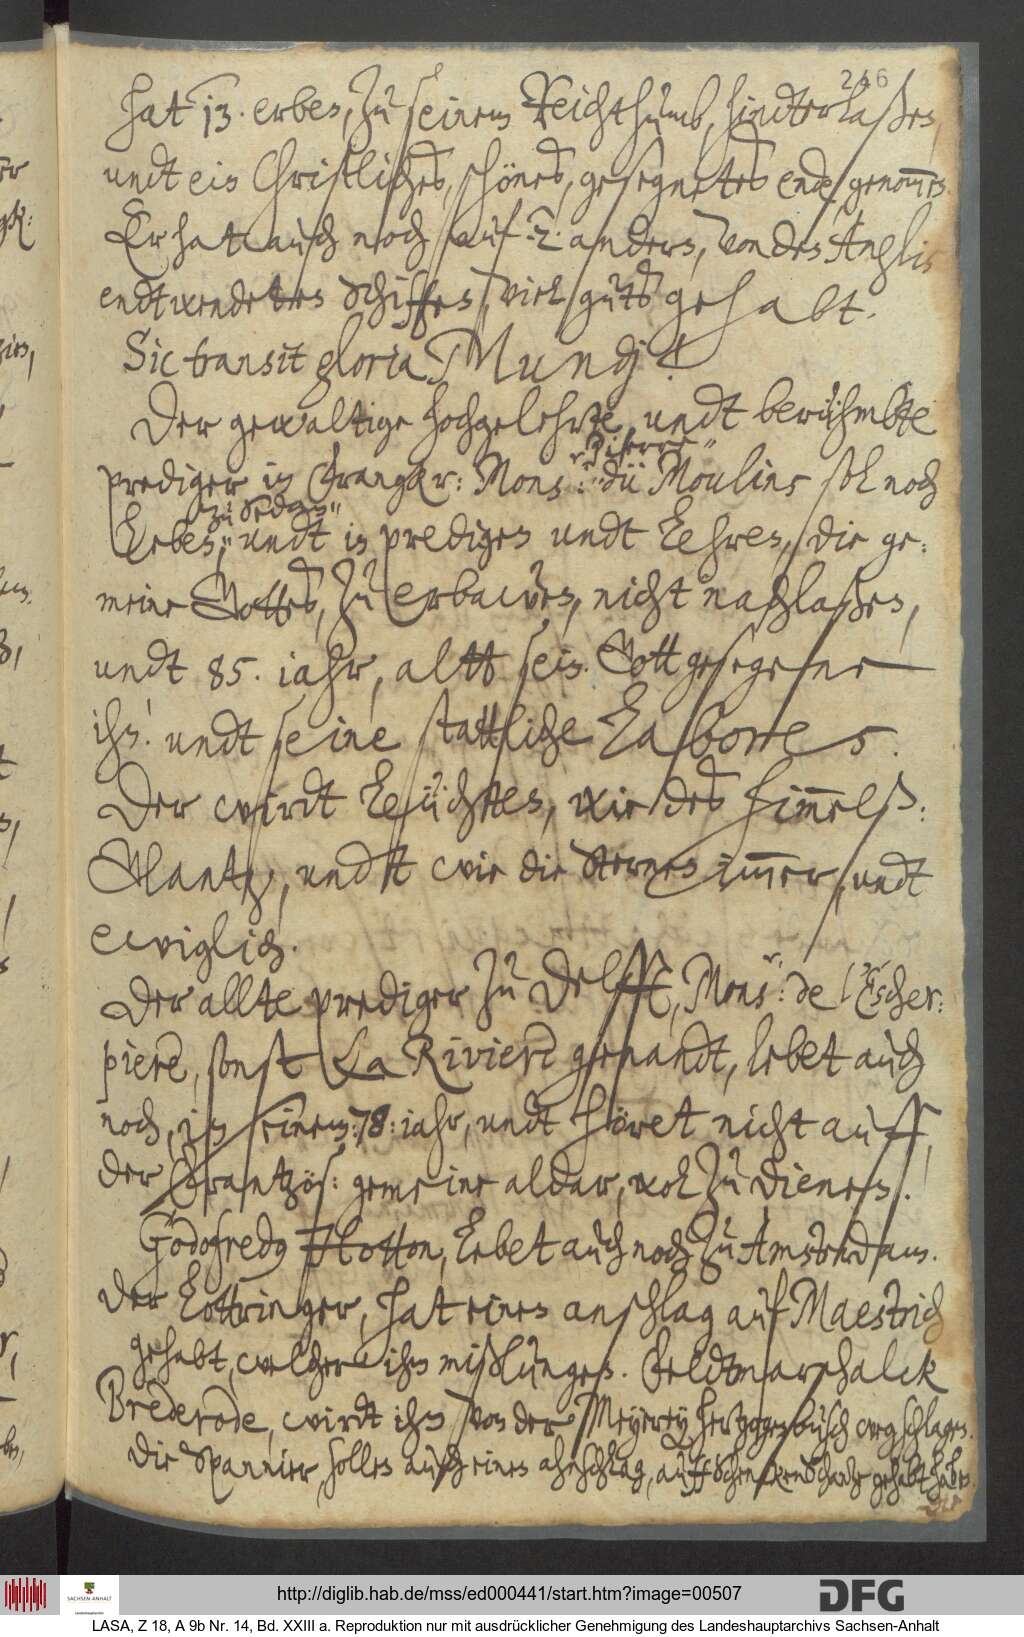 246
hat 13. erben, zu seinem Reichthumb, hindterlaßen,
undt ein Christliches, schönes, gesegnetes ende, genom̅en.
Er hat auch noch auf 2 anders, von den Anglis
endtwendeten Schiffen, viel guts gehabt.
Sic transit gloria Mundj!
Der gewaltige hochgelehrte, undt berühmbte
prediger in Frangkr: Mons:r Pierre du Moulins sol noch
Leben, zu Sedan, undt in predigen undt Lehren, die ge-
meine Gottes, zu erbawen, nicht nachlaßen,
undt 85. iahr, altt sein. Gott gesegene
ihn! undt seine stattliche Labores.
Der wirdt Leüchten, wie des him̅elß-
Glantz, undt wie die Sternen im̅er, undt
ewiglich.
Der allte prediger zu Delfft, Mons:r de l'Escher-
piere, sonst La Riviere genandt, lebet auch
noch, in seinem 78: iahr, undt höret nicht auff,
der Frantzös: gemeine aldar, wol zu dienen.
Godofredus Hotton, Lebet auch noch zu Amsterdam.
Der Lottringer, hat einen anschlag auf Maestrich
gehabt, welcher ihm mißlungen. Feldtmarschalck
Brederode, wirdt ihn von der Meyerey hertzogenbusch wegschlagen.
Die Spannier, sollen auch einen ahnschlag, auff Schenckenschantz gehabt haben.
http://diglib.hab.de/mss/ed000441/start.htm?image=00507
SACHSEN-ANHALT
Landeshauptarchiv
DFG
LASA, Z 18, A 9b Nr. 14, Bd. XXIII a. Reproduktion nur mit ausdrücklicher Genehmigung des Landeshauptarchivs Sachsen-Anhalt